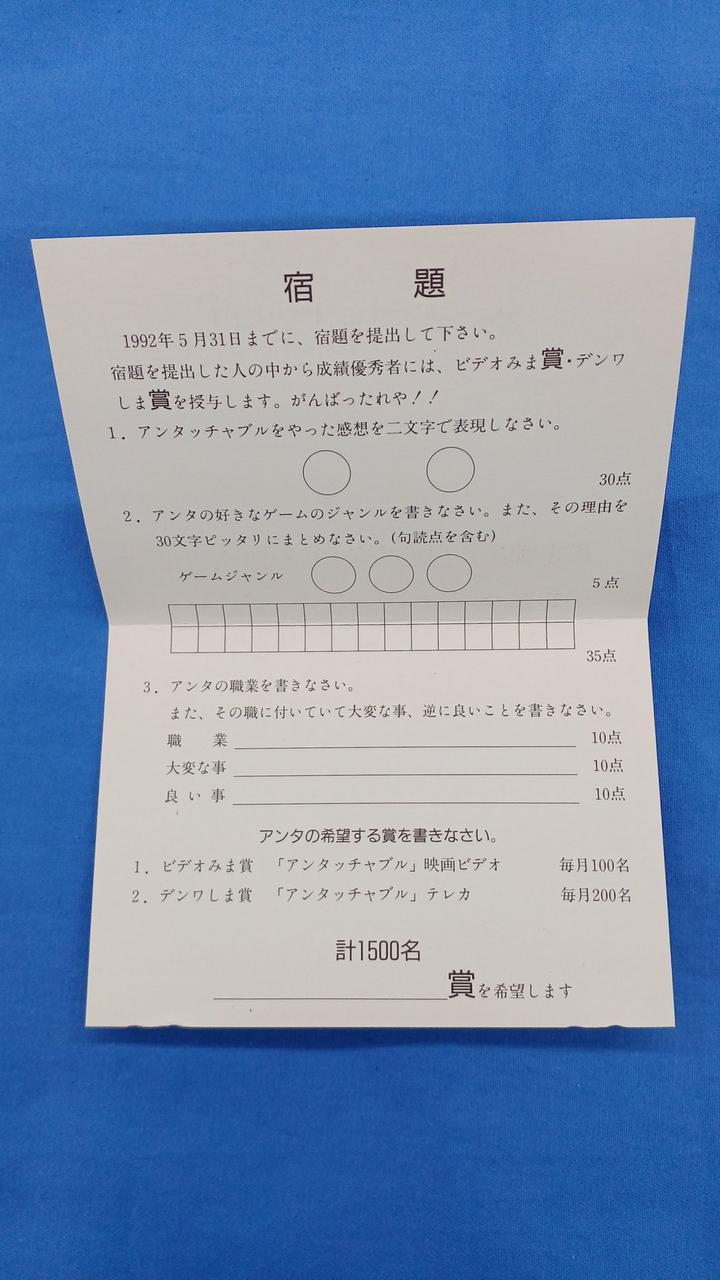 宿題
1992年5月31日までに、宿題を提出して下さい。
宿題を提出した人の中から成績優秀者には、ビデオみま賞・デンワ
しま賞を授与します。がんばったれや！！
1．アンタッチャブルをやった感想を二文字で表現しなさい。
30点
2．アンタの好きなゲームのジャンルを書きなさい。また、その理由を
30文字ピッタリにまとめなさい。(句読点を含む)
ゲームジャンル 5点
35点
3．アンタの職業を書きなさい。
また、その職に付いていて大変な事、逆に良いことを書きなさい。
職業 10点
大変な事 10点
良い事 10点
アンタの希望する賞を書きなさい。
1．ビデオみま賞 「アンタッチャブル」映画ビデオ 毎月100名
2．デンワしま賞 「アンタッチャブル」テレカ 毎月200名
計1500名
賞を希望します